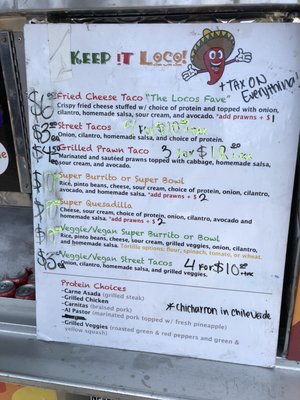 KEEP iT LOCO!
+ TAX ON
Everything
Fried Cheese Taco "The Locos Fave"
Crispy fried cheese stuffed w/ choice of protein and topped with onion,
cilantro, homemade salsa, sour cream, and avocado. *add prawns + $1
Street Tacos
Onion, cilantro, homemade salsa, and choice of protein.
Grilled Prawn Taco 3 for $12
Marinated and sautéed prawns topped with cabbage, homemade salsa,
sour cream, and avocado.
Super Burrito or Super Bowl
Rice, pinto beans, cheese, sour cream, choice of protein, onion, cilantro,
avocado and homemade salsa. *add prawns + $2
Super Quesadilla
Cheese, sour cream, choice of protein, onion, cilantro, avocado and
homemade salsa. *add prawns + $2
Veggie/Vegan Super Burrito or Bowl
Rice, pinto beans, cheese, sour cream, grilled veggies, onion, cilantro,
and homemade salsa. Tortilla options: flour, spinach, tomato, or wheat.
Veggie/Vegan Street Tacos 4 FOR $10
Onion, cilantro, homemade salsa, and grilled veggies.
Protein Choices
-Carne Asada (grilled steak)
-Grilled Chicken
-Carnitas (braised pork)
-Al Pastor (marinated pork topped w/ fresh pineapple)
-Grilled Veggies (roasted green & red peppers and green &
yellow squash)
* Chicharron in chile verde